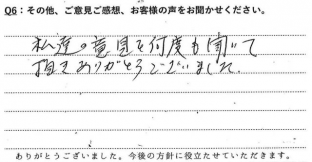 Q6：その他、ご意見ご感想、お客様の声をお聞かせください。
私達の意見を何度も聞いて
頂きありがとうございました。
ありがとうございました。今後の方針に役立たせていただきます。